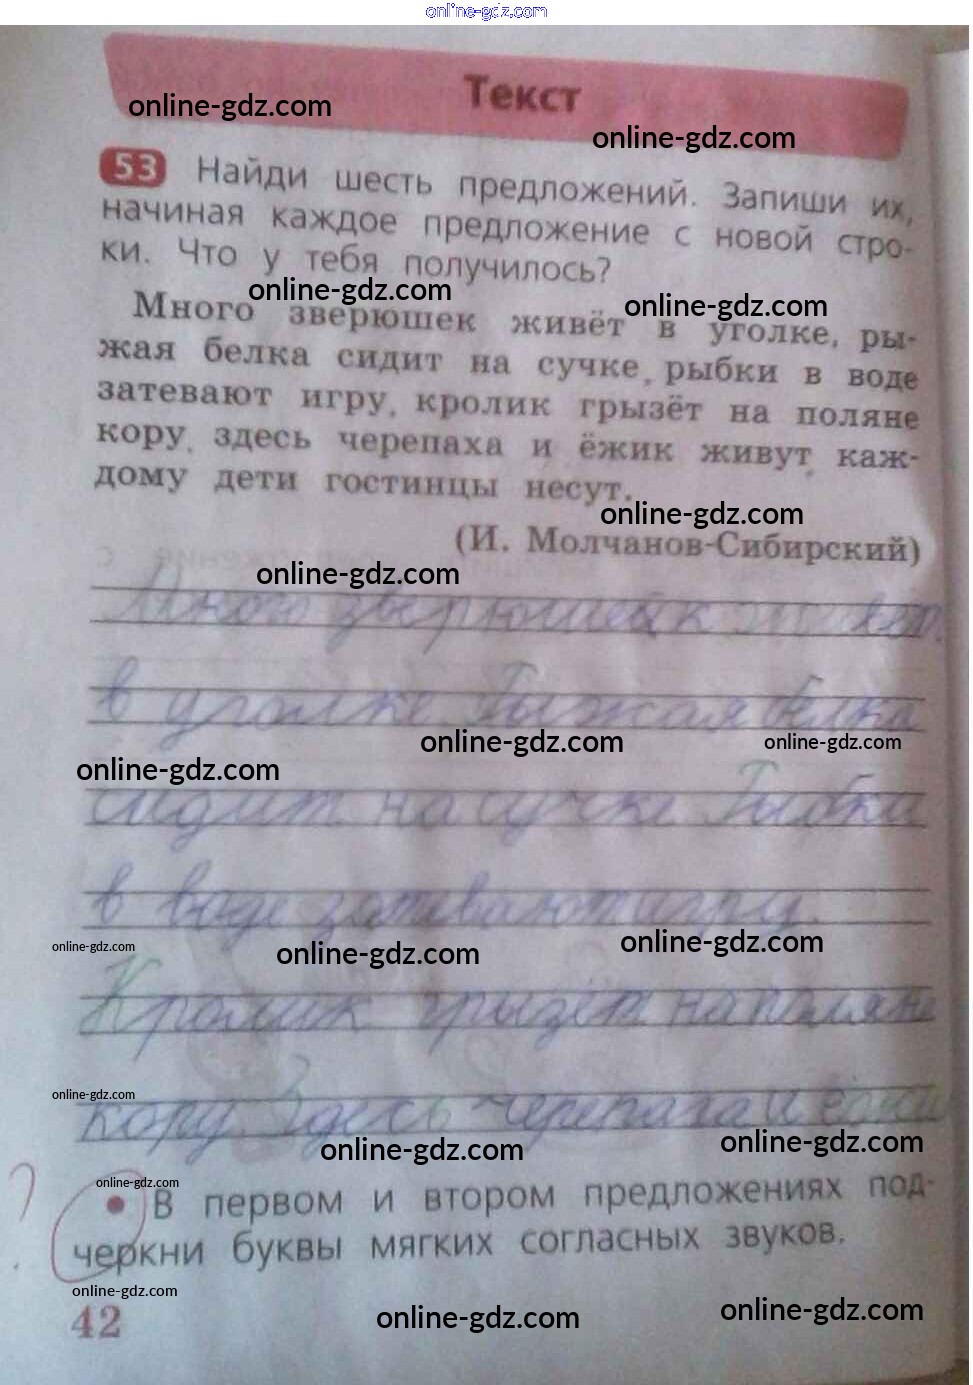 online-gdz.com
Текст
online-gdz.com
online-gdz.com
53 Найди шесть предложений. Запиши их,
начиная каждое предложение с новой стро-
ки. Что у тебя получилось?
online-gdz.com
online-gdz.com
Много зверюшек живёт в уголке, ры-
жая белка сидит на сучке, рыбки в воде
затевают игру, кролик грызёт на поляне
кору, здесь черепаха и ёжик живут, каж-
дому дети гостинцы несут.
online-gdz.com
(И. Молчанов-Сибирский)
online-gdz.com
Много зверюшек живёт
в уголке. Рыжая белка
online-gdz.com
online-gdz.com
online-gdz.com
сидит на сучке. Рыбки
в воде затевают игру.
online-gdz.com
online-gdz.com
online-gdz.com
Кролик грызёт на поляне
online-gdz.com
кору. Здесь черепаха и
online-gdz.com
online-gdz.com
online-gdz.com
? • В первом и втором предложениях под-
черкни буквы мягких согласных звуков.
online-gdz.com
42
online-gdz.com
online-gdz.com